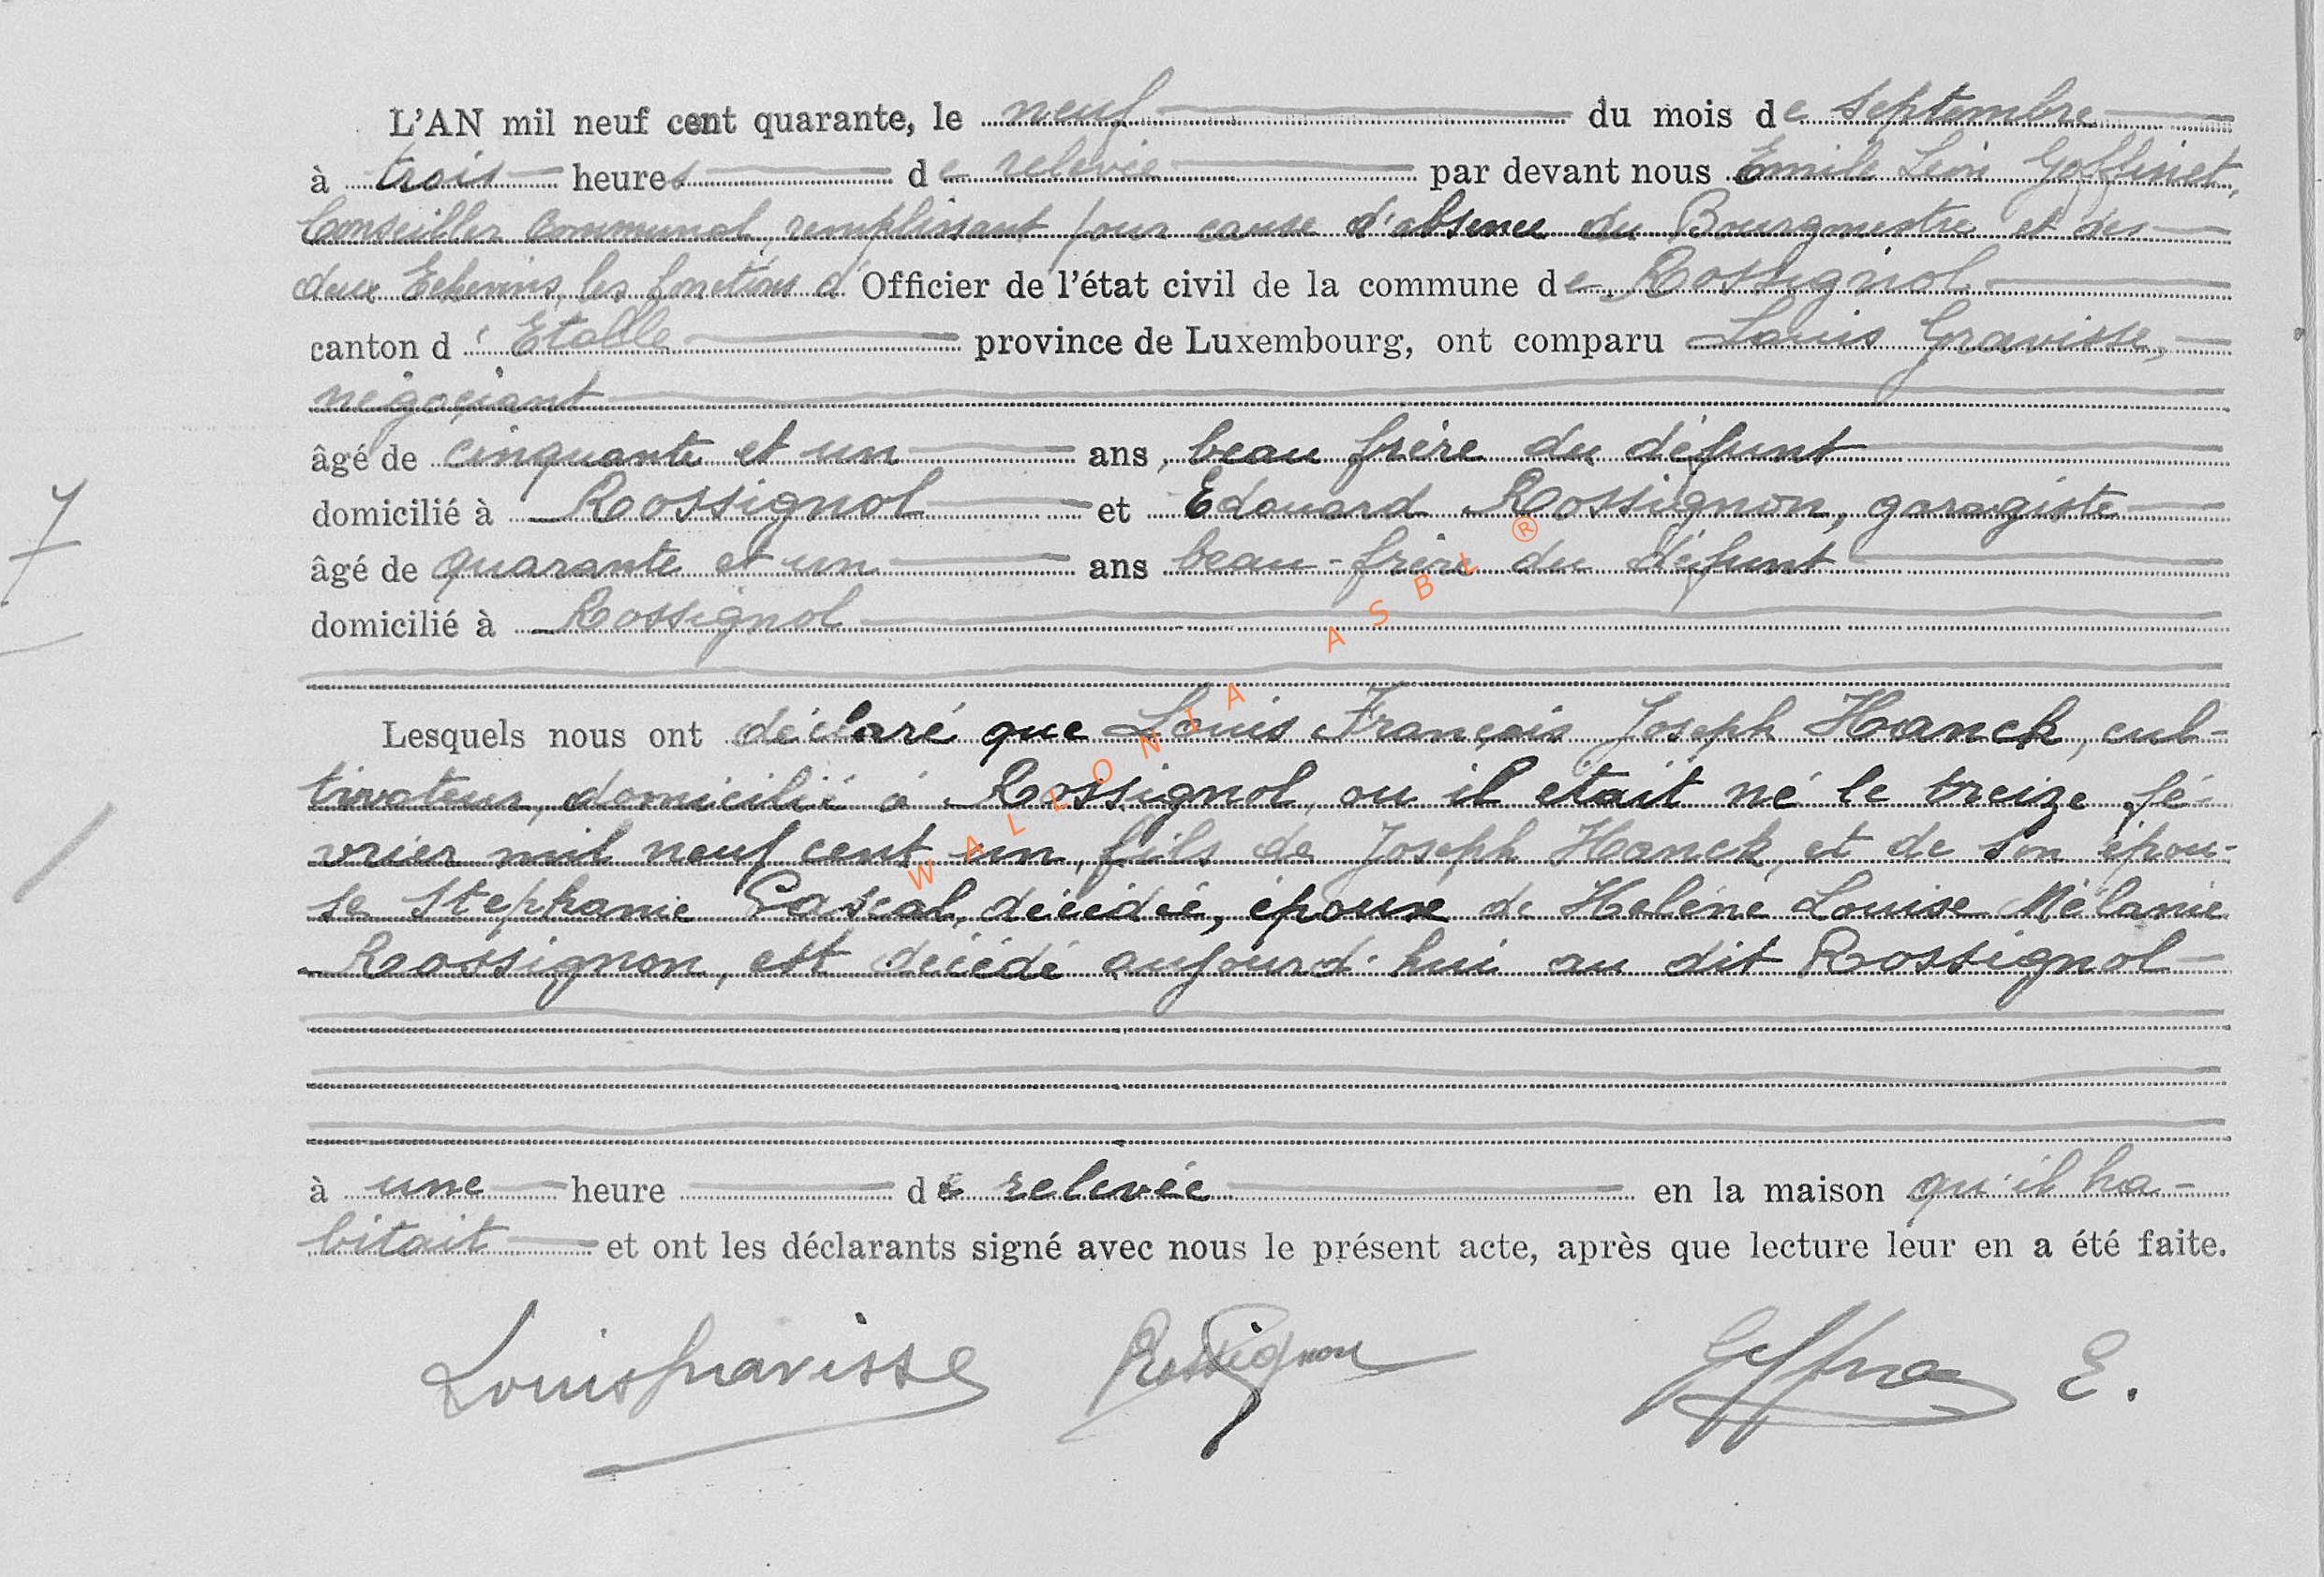 L'AN mil neuf cent quarante, le neuf du mois de Septembre
à trois heures de relevée par devant nous Emile Léon Goffinet,
Conseiller Communal, remplissant pour cause d'absence du Bourgmestre et des
deux Echevins, les fonctions d'Officier de l'état civil de la commune de Rossignol
canton d'Etalle province de Luxembourg, ont comparu Louis Gravisse,
négociant
âgé de cinquante et un ans, beau frère du défunt
domicilié à Rossignol et Edouard Rossignon, garagiste
âgé de quarante et un ans beau-frère du défunt
domicilié à Rossignol
Lesquels nous ont déclaré que Louis François Joseph Hanck, cul-
tivateur, domicilié à Rossignol, ou il etait né le treize fé-
vrier mil neuf cent un, fils de Joseph Hanck, et de son épou-
se Stephanie Pascal, décédée, époux de Heléne Louise Mélanie
Rossignon, est décédé aujourd'hui au dit Rossignol
à une heure de relevée en la maison qu'il ha-
bitait et ont les déclarants signé avec nous le présent acte, après que lecture leur en a été faite.
Louis Gravisse Rossignon E.
7
WALLONIA ASBL ®